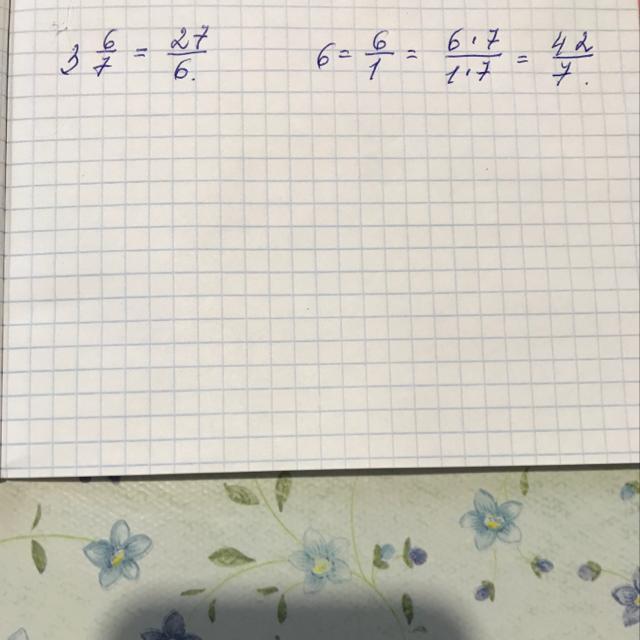 3 6/7 = 27/6. 6 = 6/1 = 6·7/1·7 = 42/7.